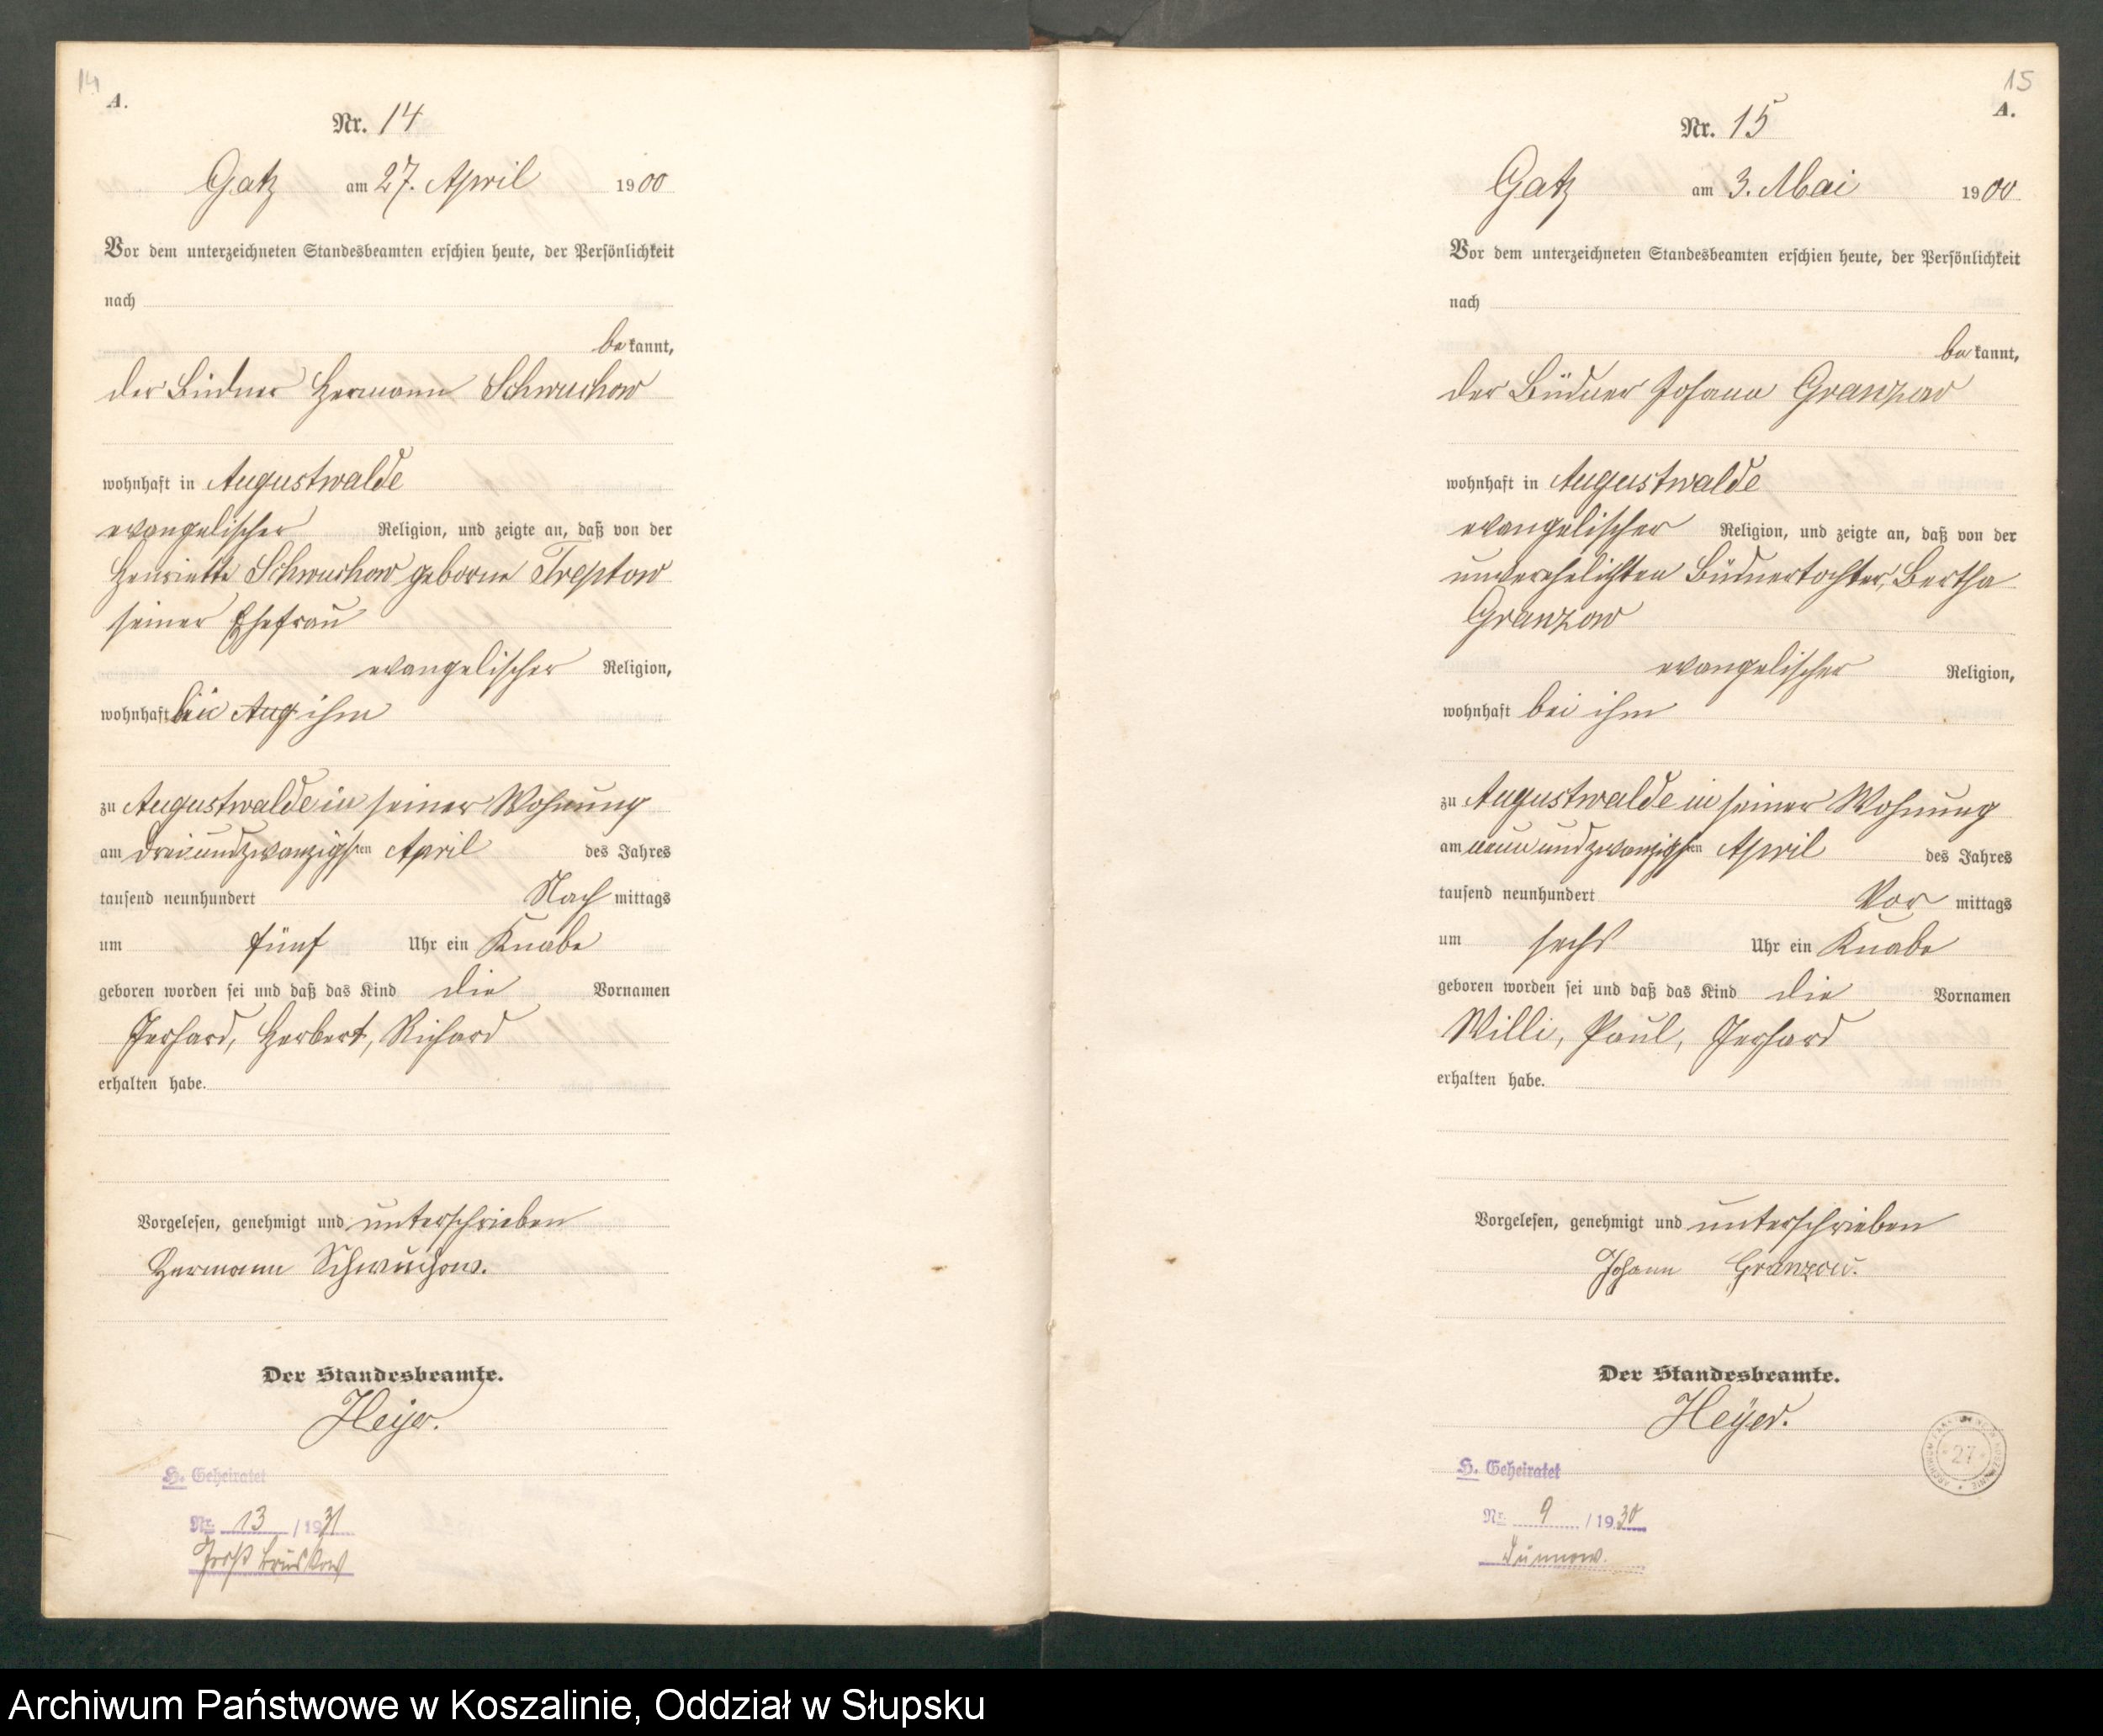 14
A.
Nr. 14
Gatz am 27. April 1900
Vor dem unterzeichneten Standesbeamten erschien heute, der Persönlichkeit
nach
bekannt,
der Büdner Hermann Schwuchow
wohnhaft in Augustwalde
evangelischer Religion, und zeigte an, daß von der
Henriette Schwuchow geborne Treptow
seiner Ehefrau
evangelischer Religion,
wohnhaft bei Aug ihm
zu Augustwalde in seiner Wohnung
am dreiundzwanzigsten April des Jahres
tausend neunhundert Nachmittags
um fünf Uhr ein Knabe
geboren worden sei und daß das Kind die Vornamen
Gerhard, Herbert, Richard
erhalten habe.
Vorgelesen, genehmigt und unterschrieben
Hermann Schwuchow.
Der Standesbeamte.
Heyer.
H. Geheiratet
Nr. 13 / 1931
Groß Brüskow
15
A.
Nr. 15
Gatz am 3. Mai 1900
Vor dem unterzeichneten Standesbeamten erschien heute, der Persönlichkeit
nach
bekannt,
der Büdner Johann Granzow
wohnhaft in Augustwalde
evangelischer Religion, und zeigte an, daß von der
unverehelichten Büdnertochter, Bertha
Granzow
evangelischer Religion,
wohnhaft bei ihm
zu Augustwalde in seiner Wohnung
am neunundzwanzigsten April des Jahres
tausend neunhundert Vormittags
um sechs Uhr ein Knabe
geboren worden sei und daß das Kind die Vornamen
Willi, Paul, Gerhard
erhalten habe.
Vorgelesen, genehmigt und unterschrieben
Johann Granzow.
Der Standesbeamte.
Heyer.
27
H. Geheiratet
Nr. 9 / 1930
Dünnow.
Archiwum Państwowe w Koszalinie, Oddział w Słupsku